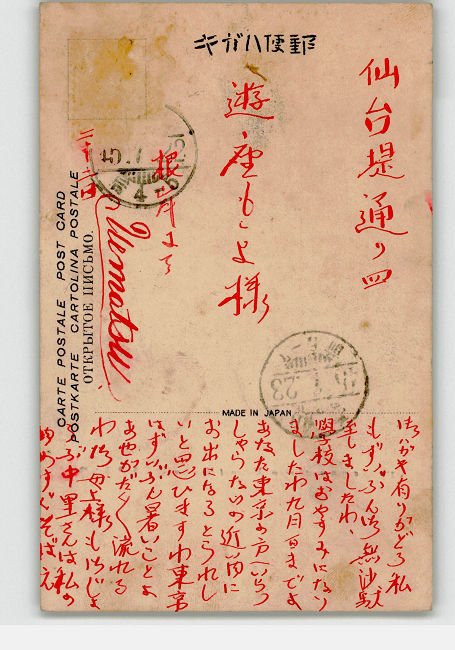 キガハ便郵
仙台堤通り四
遊座もとよ様
二十二日
根岸
Uematsu
CARTE POSTALE POST CARD
POSTKARTE CARTOLINA POSTALE
ОТКРЫТОЕ ПИСЬМО.
MADE IN JAPAN
御はがき有りがどう私
もずゐぶん御無沙駄
致しましたわ、
学校はおやすみになり
ましたわ九月一日までよ
あなた東京の方へいらつ
しゃらないの近い内に
お出になるとうれし
いと思ひますわ東京
はずゐぶん暑いことよ
あせがだくだく流れる
わ御母上様も御じょ
うぶ中里さんは私の
すぐそばへ